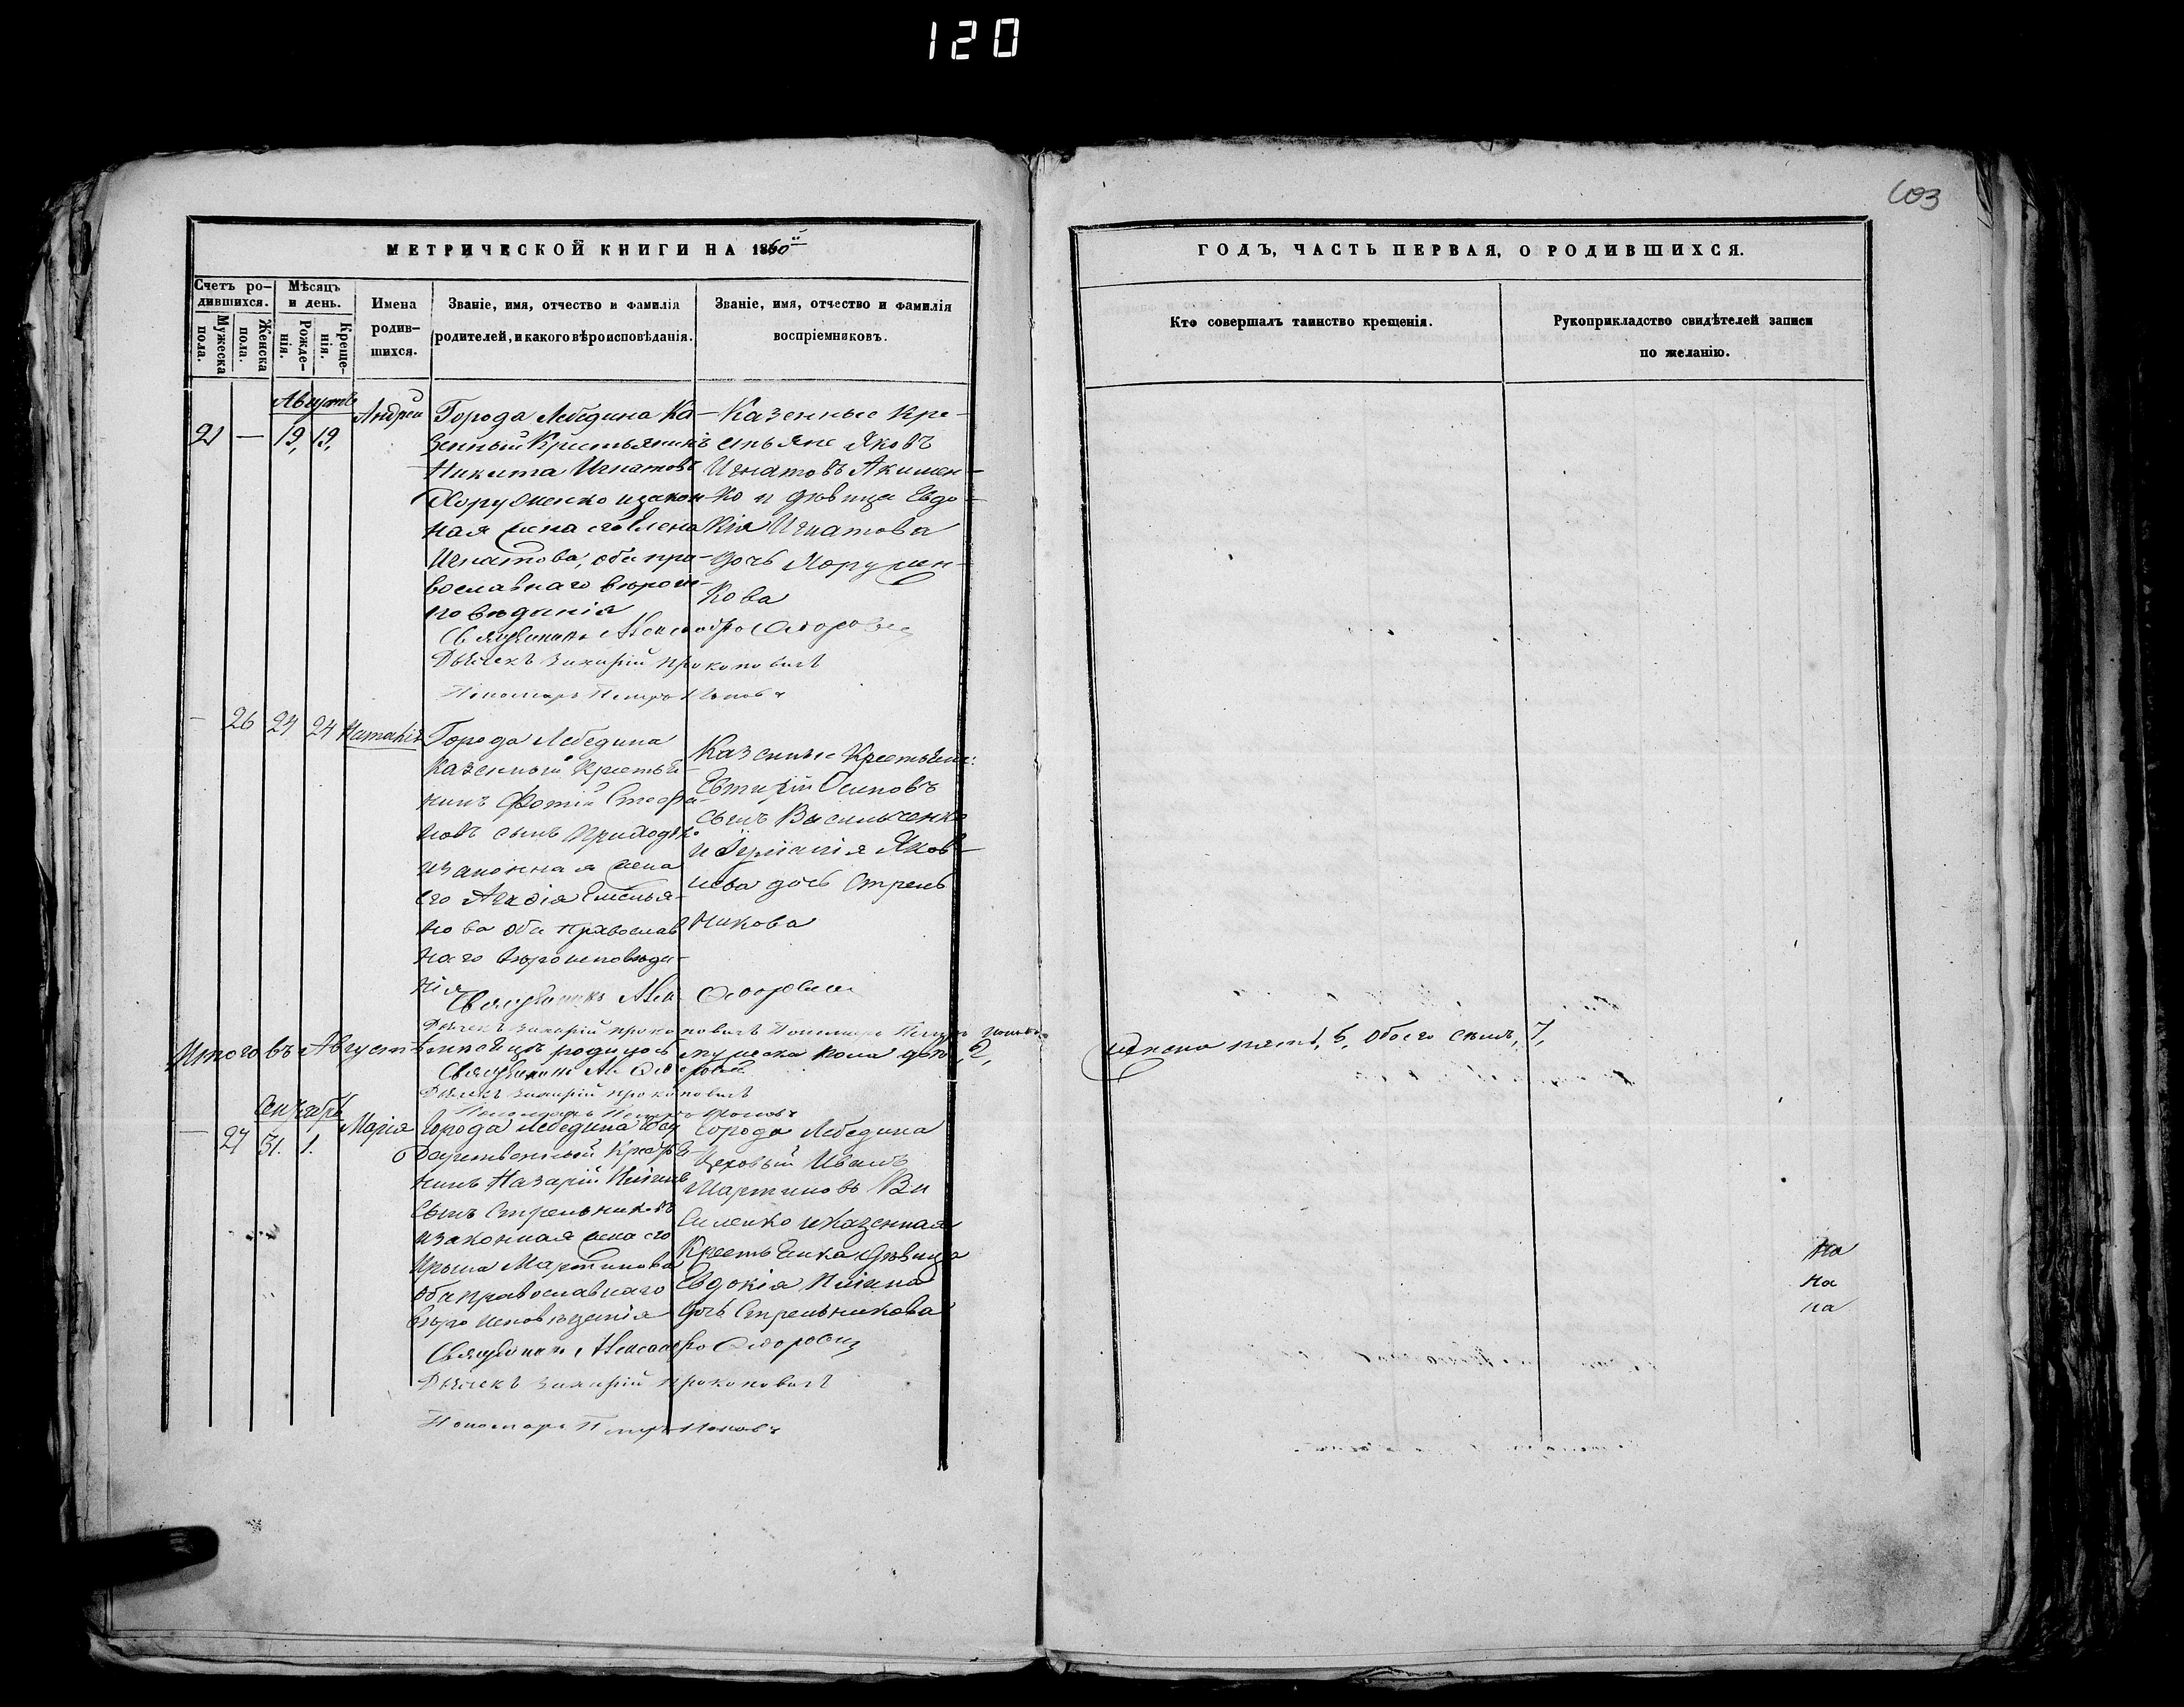 120
603
МЕТРИЧЕСКОЙ КНИГИ НА 1860й
Счетъ ро-
дившихся.
Мужеска
пола.
Женска
пола.
Мѣсяцъ
и день.
Рожде-
нія.
Креще-
нія.
Имена
родив-
шихся.
Званіе, имя, отчество и фамилія
родителей, и какого вѣроисповѣданія.
Званіе, имя, отчество и фамилія
воспріемниковъ.
ГОДЪ, ЧАСТЬ ПЕРВАЯ, О РОДИВШИХСЯ.
Кто совершалъ таинство крещенія.
Рукоприкладство свидѣтелей записи
по желанію.
Августъ
21 — 19, 19,
Андрей
Города Лебедина Ка-
зенный Крестьянинъ
Никита Игнатовъ
Хоруженко и закон-
ная жена его Елена
Игнатова, оба пра-
вославнаго вѣрои-
повѣданія
Казенные Кре-
стьяне Яковъ
Игнатовъ Акимен-
ко и дѣвица Евдо-
кія Игнатова
дочь Хоружен-
кова
Священникъ Александръ
Дьячекъ Захарій Прокоповичъ
Пономарь Петръ Поповъ
— 26 24 24 Наталія
Города Лебедина
Казенный Крестья-
нинъ Фотій Стефа-
новъ сынъ Приходько
и законная жена
его Агафія Емелья-
нова оба православ
наго вѣроисповѣда-
нія
Казенные Крестьяне:
Евтихій Осиповъ
сынъ Васильченко
и Яков-
лева дочь Стрель
никова
Священникъ Алек
Дьячекъ Захарій Прокоповичъ Пономарь Петръ Поповъ
Итого въ Августѣ мѣсяцѣ родилось мужеска пола двое, 2,
женска пять, 5, обоего семь, 7,
Священникъ Ал
Дьячекъ Захарій Прокоповичъ
Пономарь Петръ Поповъ
Сентябрь
— 27 31. 1.
Марія
Города Лебедина Госу
дарственный Крестья-
нинъ Назарій
сынъ Стрельниковъ
и законная жена его
Ирына Мартинова
оба православнаго
вѣроисповѣданія
Города Лебедина
Цеховый Иванъ
Мартиновъ Ва
силенко и Казенная
Крестьянка дѣвица
Евдокія
дочь Стрельникова
Священникъ Александръ
Дьячекъ Захарій Прокоповичъ
Пономарь Петръ Поповъ
на
на
на